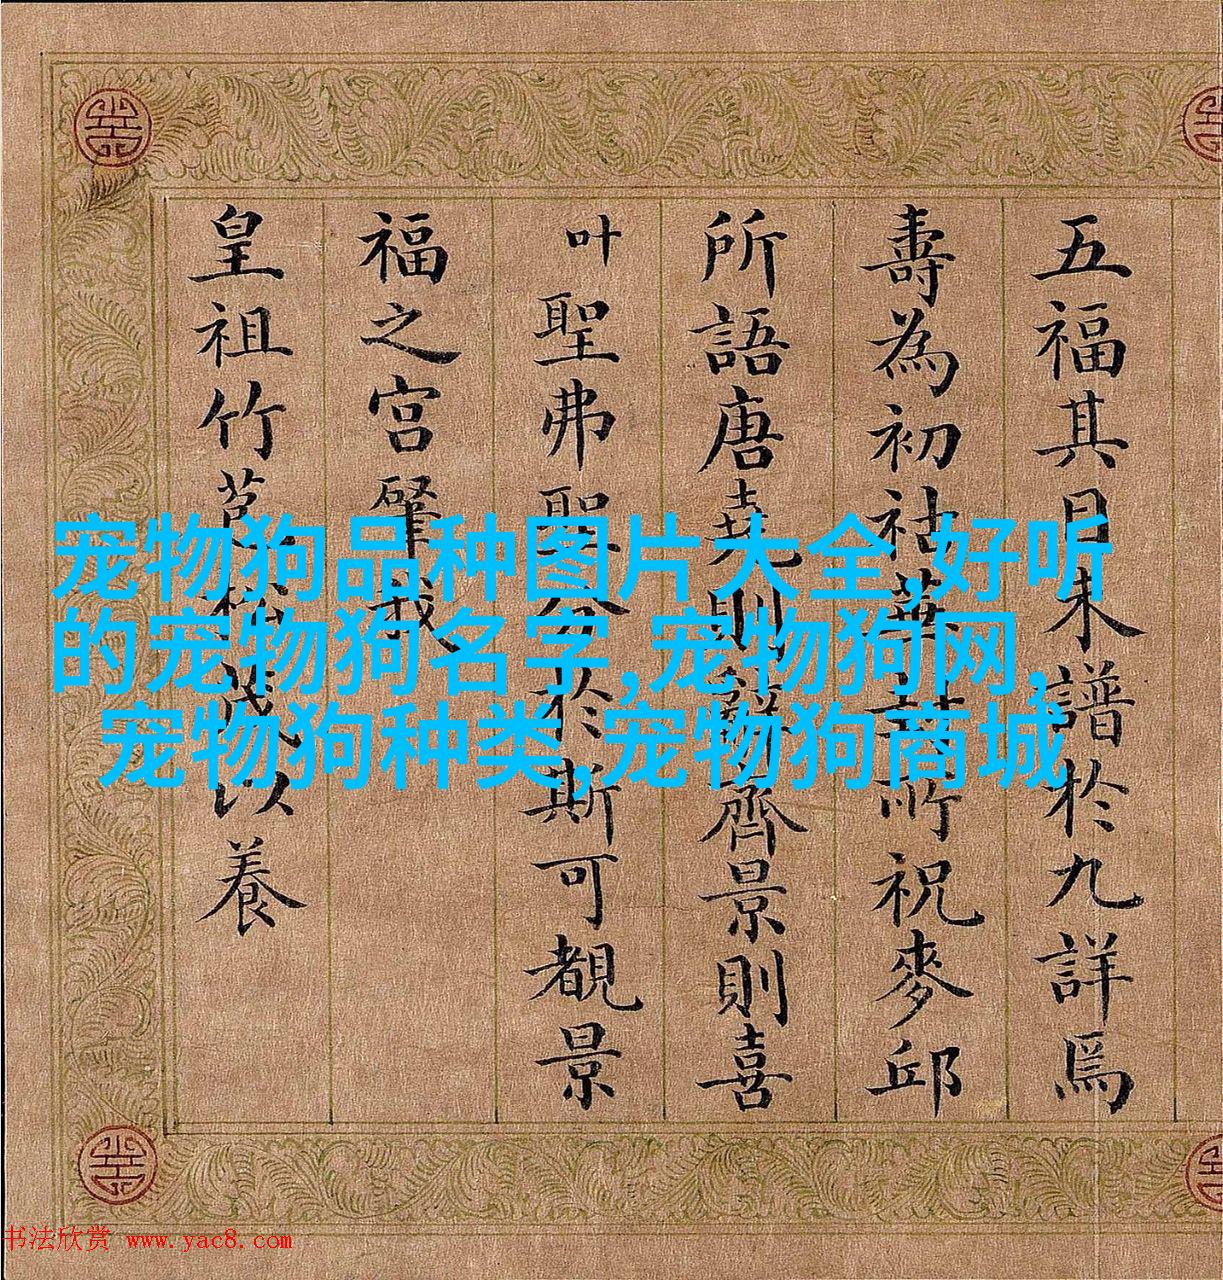 五福其目未譜於九詳焉
壽為初祜華封所祝麥邱
所語唐堯則辭齊景則喜
叶聖弗聖分於斯可覩景
福之宮肇我
皇祖竹苞松茂以養
宠物狗品种图片大全,好听
的宠物狗名字,宠物狗网,
宠物狗种类,宠物狗商城
书法欣赏 www.yac8.com